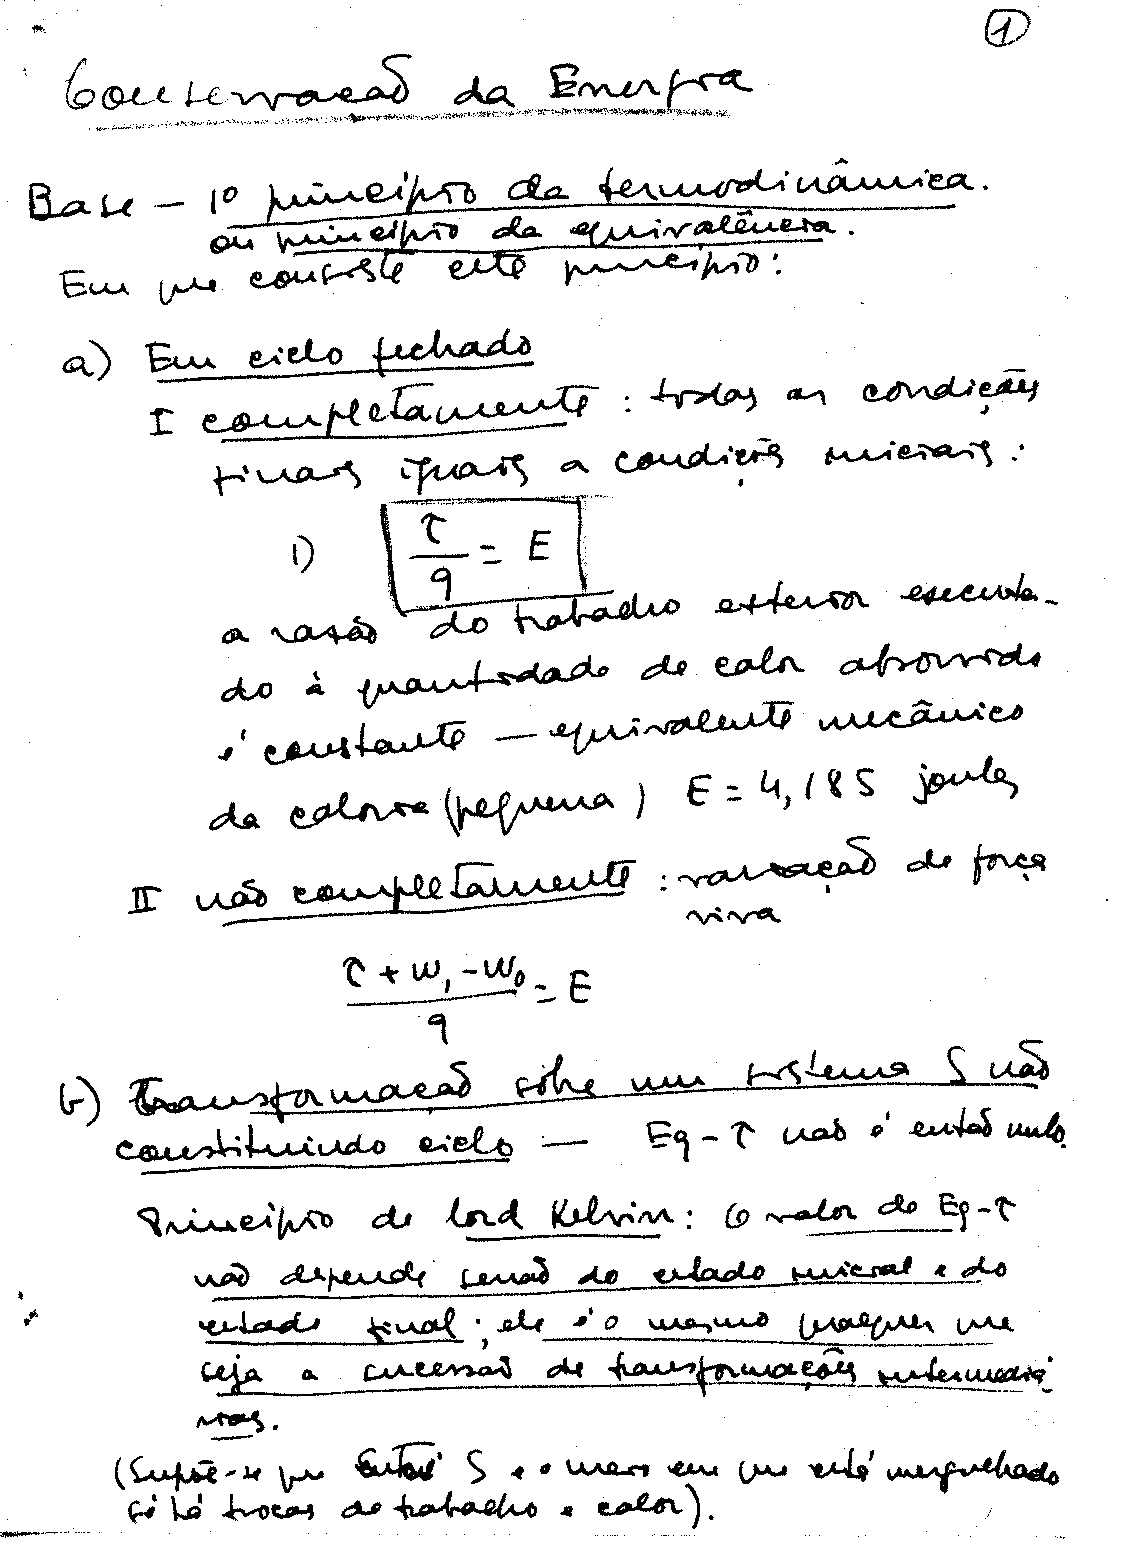 1
Conservação da Energia
Base — 1º princípio da termodinâmica.
ou princípio da equivalência.
Em que consiste este princípio:
a) Em ciclo fechado
I completamente : todas as condições
finais iguais a condições iniciais :
1) τ/q = E
a razão do trabalho exterior executa-
do à quantidade de calor absorvido
é constante — equivalente mecânico
da caloria (pequena) E = 4,185 joules
II não completamente : variação de força
viva
(τ + W₁ - W₀)/q = E
b) Transformação sôbre um sistema S não
constituindo ciclo — Eq - τ não é então nulo.
Princípio de Lord Kelvin: O valor de Eq - τ
não depende senão do estado inicial e do
estado final ; ele é o mesmo qualquer que
seja a sucessão de transformações intermediá-
rias.
(Supõe-se que entre S e o meio em que está mergulhado
só há trocas de trabalho e calor).